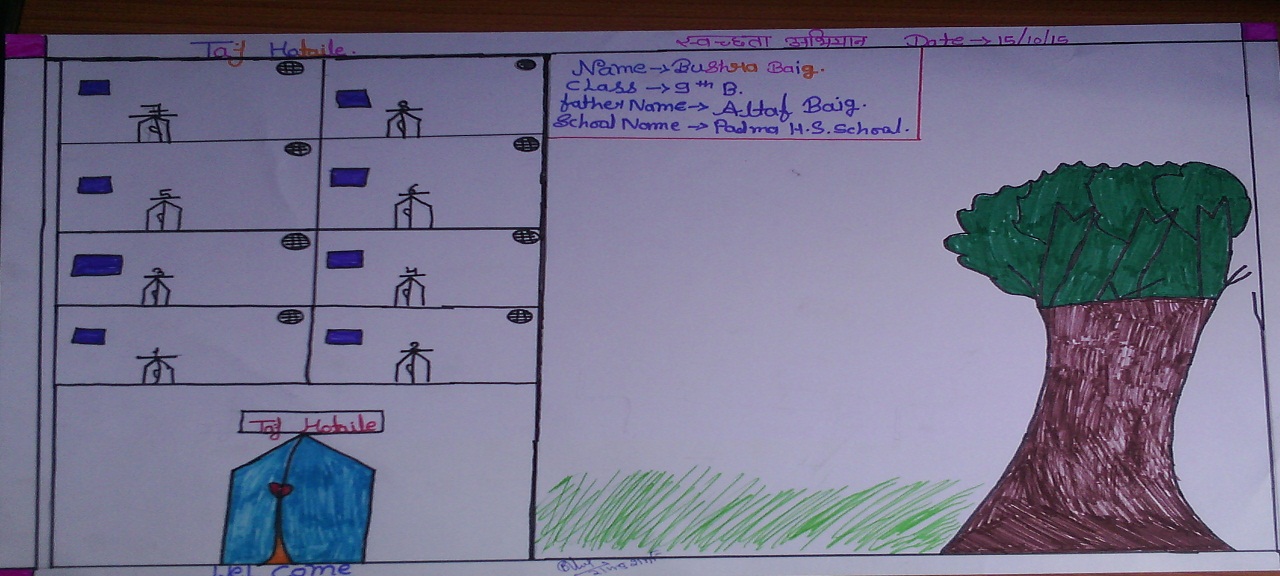 Taj Hotaile.
स्वच्छता अभियान Date → 15/10/15
Name → Bushra Baig.
Class → 9th B.
father Name → Altaf Baig.
School Name → Padma H.S. School.
7 8
5 6
3 4
1 2
Taj Hotaile
Wel come